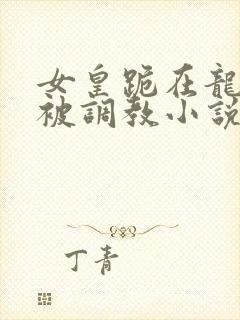 女皇跪在龍
被調教小說
丁青